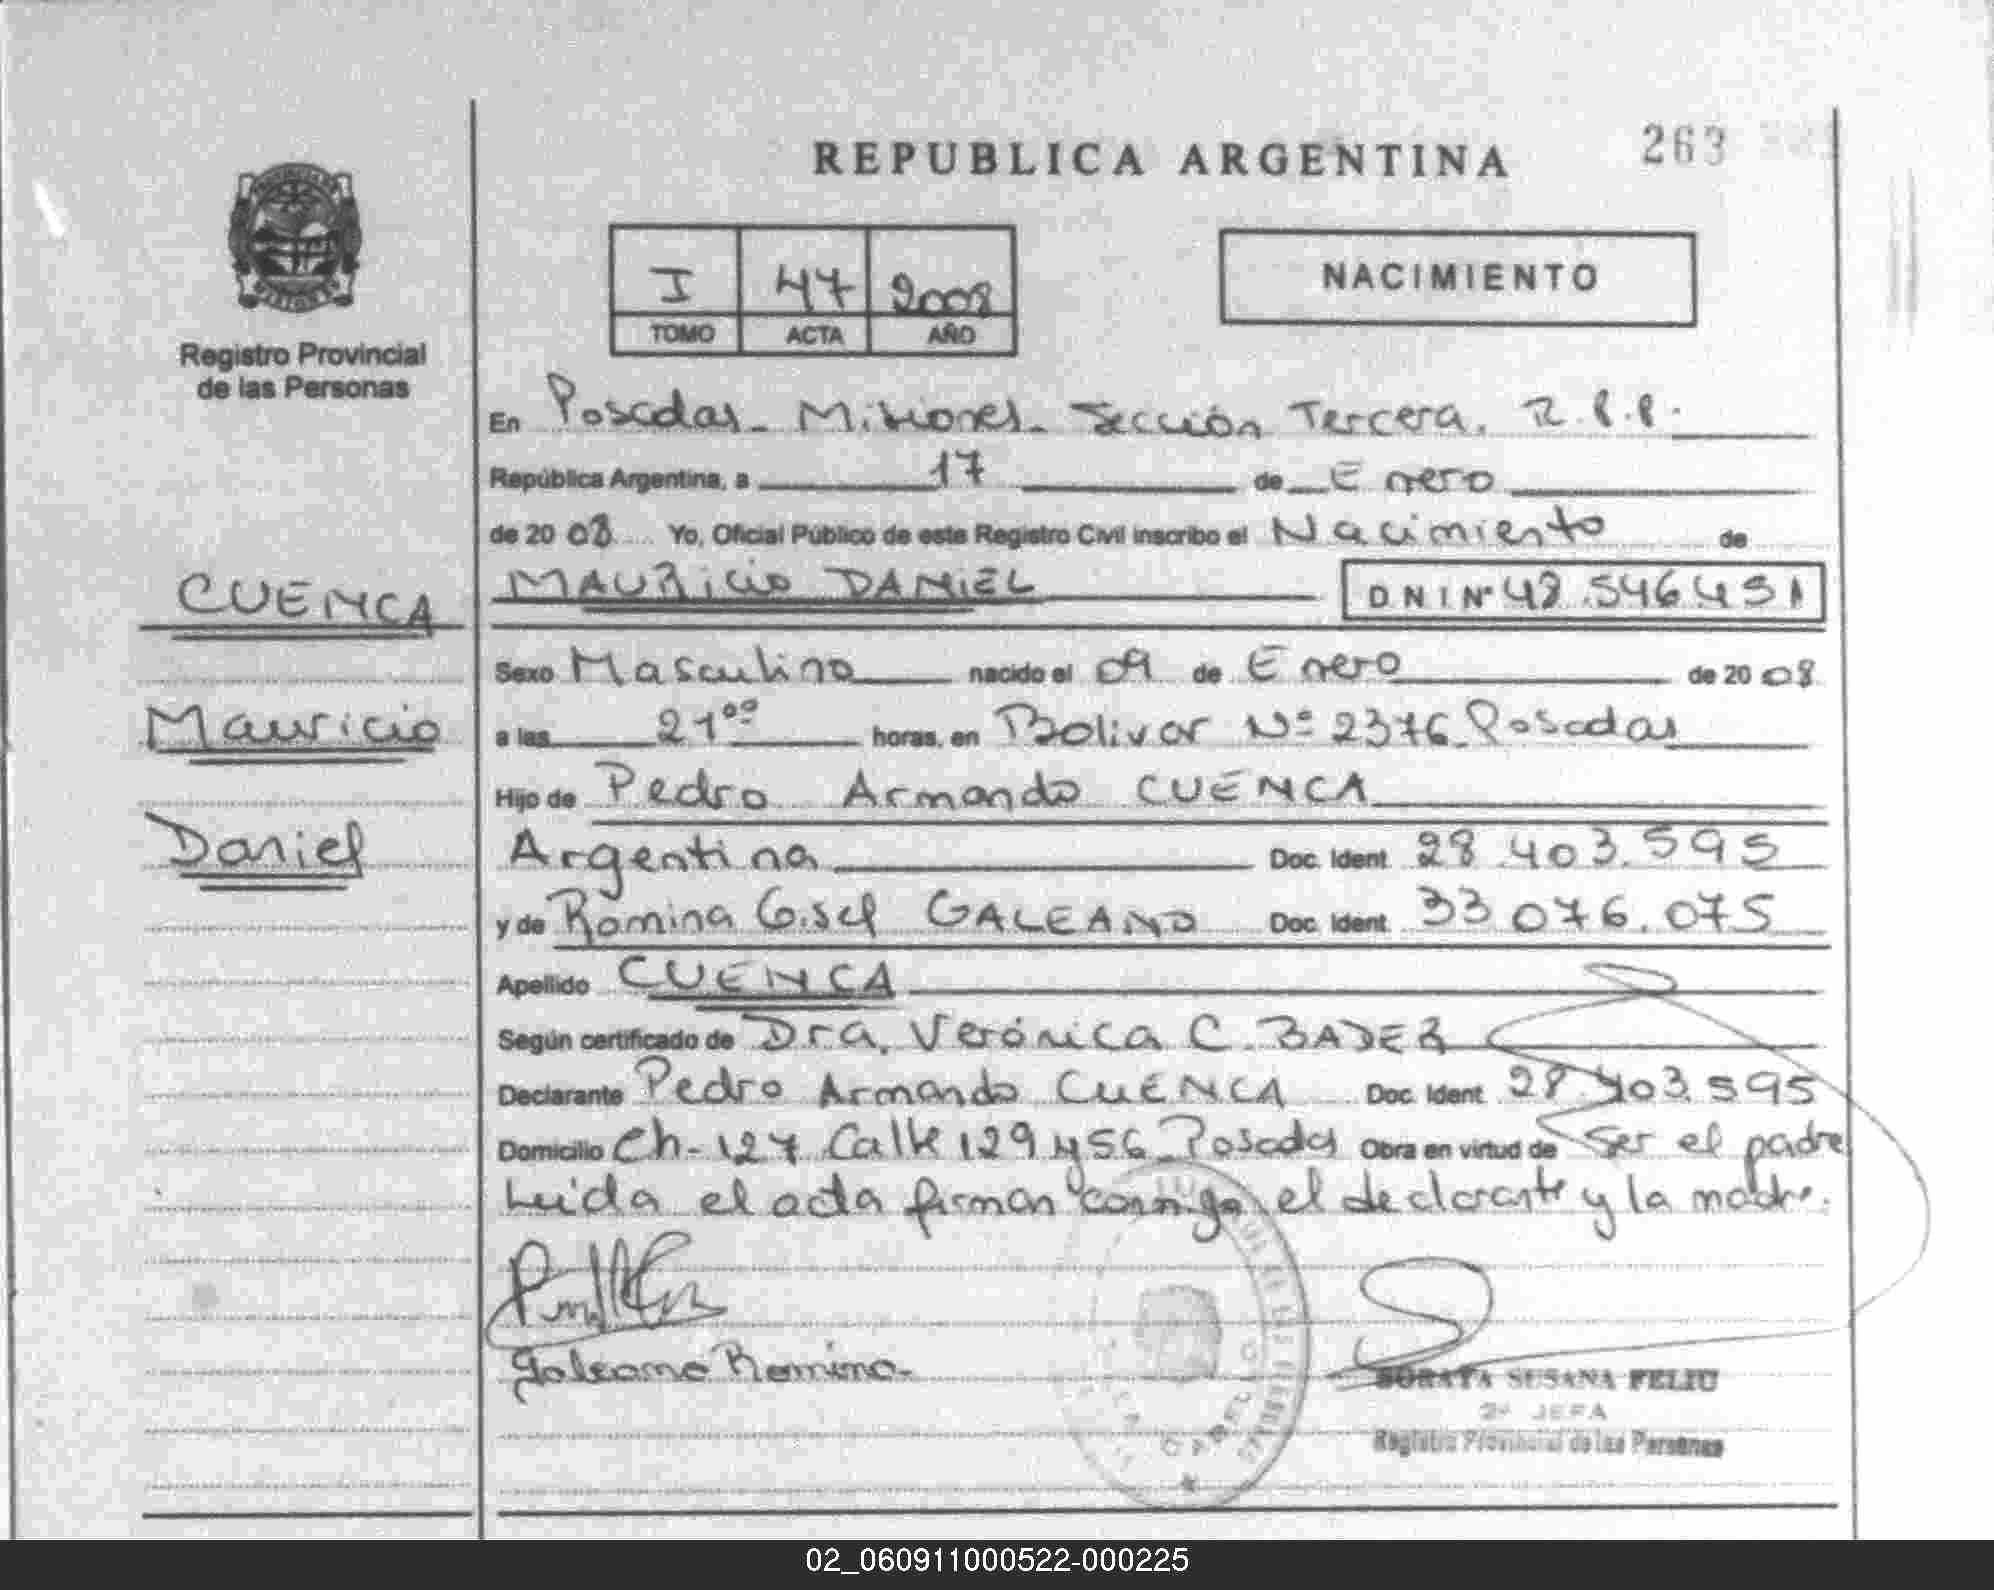 REPUBLICA ARGENTINA
263
I 47 2008
TOMO ACTA AÑO
NACIMIENTO
Registro Provincial
de las Personas
En Posadas - Misiones - Sección Tercera. R.P.P.
República Argentina, a 17 de Enero
de 20 08 Yo, Oficial Público de este Registro Civil inscribo el Nacimiento de
CUENCA
MAURICIO DANIEL DNI Nº 48.546.451
Sexo Masculino nacido el 09 de Enero de 20 08
Mauricio
a las 21ºº horas, en Bolivar Nº 2376 Posadas
Hijo de Pedro Armando CUENCA
Daniel
Argentina Doc. Ident 28.403.595
y de Romina Gisel GALEANO Doc. Ident 33.076.075
Apellido CUENCA
Según certificado de Dra. Verónica C. BADER
Declarante Pedro Armando CUENCA Doc. Ident 28.403.595
Domicilio Ch-127 Calle 129 y 56 - Posadas Obra en virtud de Ser el padre
Leida el acta firman conmigo el declarante y la madre.
Galeano Romina
SORAYA SUSANA FELIU
2ª JEFA
Registro Provincial de las Personas
02_060911000522-000225